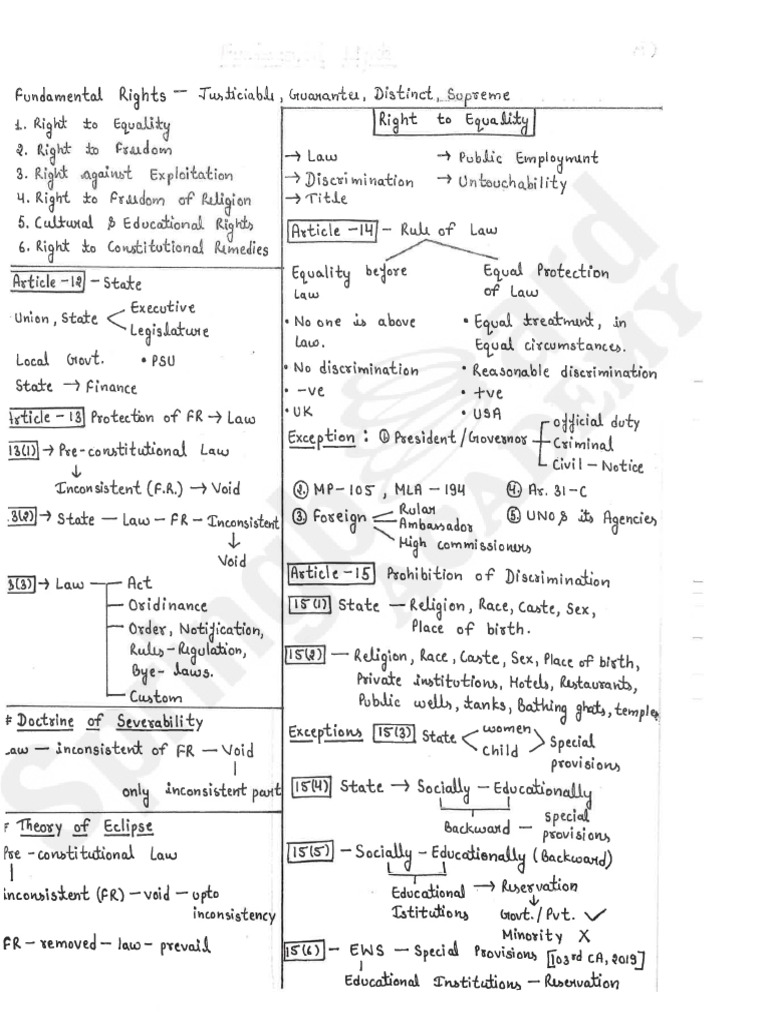 Fundamental Rights — Justiciable, Guarantee, Distinct, Supreme
1. Right to Equality
2. Right to Freedom
3. Right against Exploitation
4. Right to Freedom of Religion
5. Cultural & Educational Rights
6. Right to Constitutional Remedies
Article-12 - State
Union, State < Executive
Legislature
Local Govt. • PSU
State → Finance
Article-13 Protection of FR → Law
13(1) → Pre-constitutional Law
↓
Inconsistent (F.R.) → Void
3(2) → State — Law — FR — Inconsistent
↓
Void
3(3) → Law — Act
Oridinance
Order, Notification,
Rules-Regulation,
Bye-laws.
Custom
# Doctrine of Severability
Law — inconsistent of FR — Void
only inconsistent part
# Theory of Eclipse
Pre-constitutional Law
inconsistent (FR) — void — upto
inconsistency
FR — removed — law — prevail
Right to Equality
→ Law → Public Employment
→ Discrimination → Untouchability
→ Title
Article-14 - Rule of Law
Equality before Equal Protection
Law of Law
• No one is above • Equal treatment, in
Law. Equal circumstances.
• No discrimination • Reasonable discrimination
• -ve • +ve
• UK • USA
Exception : ① President/Governor official duty
Criminal
Civil - Notice
②. MP-105, MLA-194 ④. Ar. 31-C
③. Foreign Rular ⑤. UNO & its Agencies
Ambassador
High commissioners
Article-15 Prohibition of Discrimination
15(1) State — Religion, Race, Caste, Sex,
Place of birth.
15(2) — Religion, Race, Caste, Sex, Place of birth,
Private institutions, Hotels, Restaurants,
Public wells, tanks, Bathing ghats, temples
Exceptions 15(3) State < women
child > Special
provisions
15(4) State → Socially — Educationally
Backward — special
provisions
15(5) — Socially — Educationally (Backward)
Educational → Reservation
Istitutions ↓
Govt./Pvt. ✓
Minority X
15(6) — EWS — Special Provisions [103rd CA, 2019]
Educational Institutions — Reservation
Springboard
ACADEMY